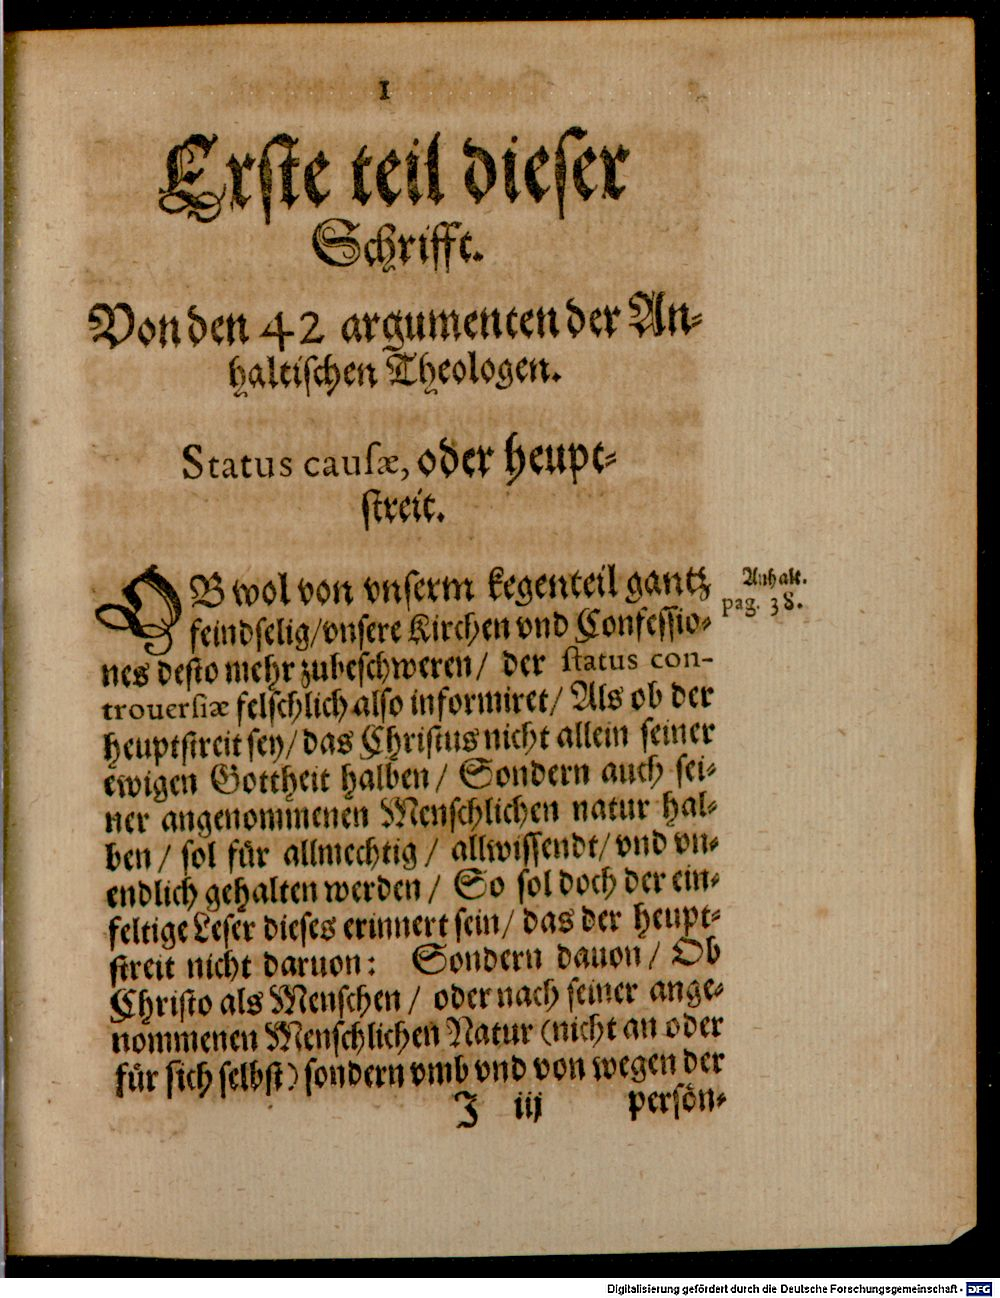 1
Erste teil dieser
Schrifft.
Von den 42 argumenten der An⸗
haltischen Theologen.
Status causæ, oder heupt⸗
streit.
OB wol von vnserm kegenteil gantz
feindselig/vnsere Kirchen vnd Confessio⸗
nes desto mehr zubeschweren/ der status con-
trouersiæ felschlich also informiret/ Als ob der
heuptstreit sey/das Christus nicht allein seiner
ewigen Gottheit halben/ Sondern auch sei⸗
ner angenommenen Menschlichen natur hal⸗
ben/ sol für allmechtig/ allwissendt/vnd vn⸗
endlich gehalten werden/ So sol doch der ein⸗
feltige Leser dieses erinnert sein/ das der heupt⸗
streit nicht daruon: Sondern dauon/ Ob
Christo als Menschen/ oder nach seiner ange⸗
nommenen Menschlichen Natur (nicht an oder
für sich selbst) sondern vmb vnd von wegen der
J iij persön⸗
Anhalt.
pag. 38.
Digitalisierung gefördert durch die Deutsche Forschungsgemeinschaft - DFG